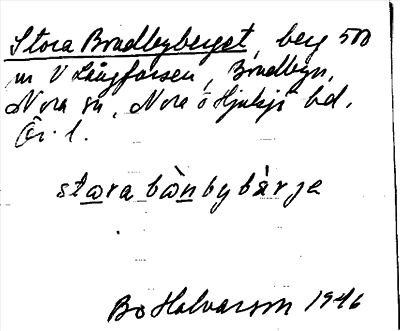 Stora Bondbyberget, berg 500
m V Långforsen, Bondbyn,
Nora sn, Nora o Hjulsjö bd,
Ör. l.
stɷra bɷ̀nbybæ̀rje
Bo Halvarson 1946